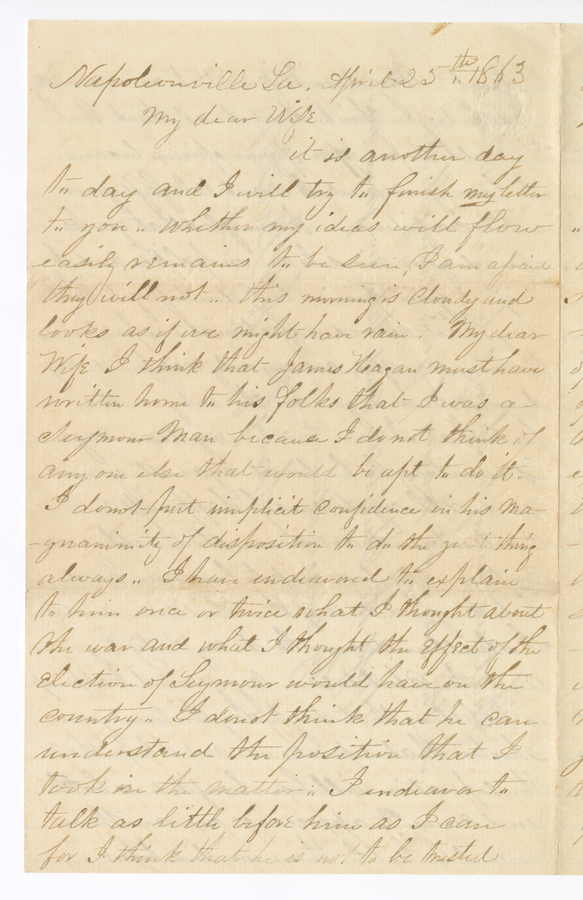 Napoleonville La. April 25th 1863
My dear Wife
it is another day
to day and I will try to finish my letter
to you .. Whether my ideas will flow
easily remains to be seen, I am afraid
they will not .. this morning is cloudy and
looks as if we might have rain . My dear
Wife I think that James Keagan must have
written home to his folks that I was a
Seymour Man because I do not think of
any one else that would be apt to do it .
I do not put implicit confidence in his ma-
-gnanimity of disposition to do the just thing
always .. I have endeavored to explain
to him once or twice what I thought about
the war and what I thought the Effect of the
Election of Seymour would have on the
country .. I do not think that he can
understand the position that I
took in the matter .. I endeavor to
talk as little before him as I can
for I think that he is not to be trusted